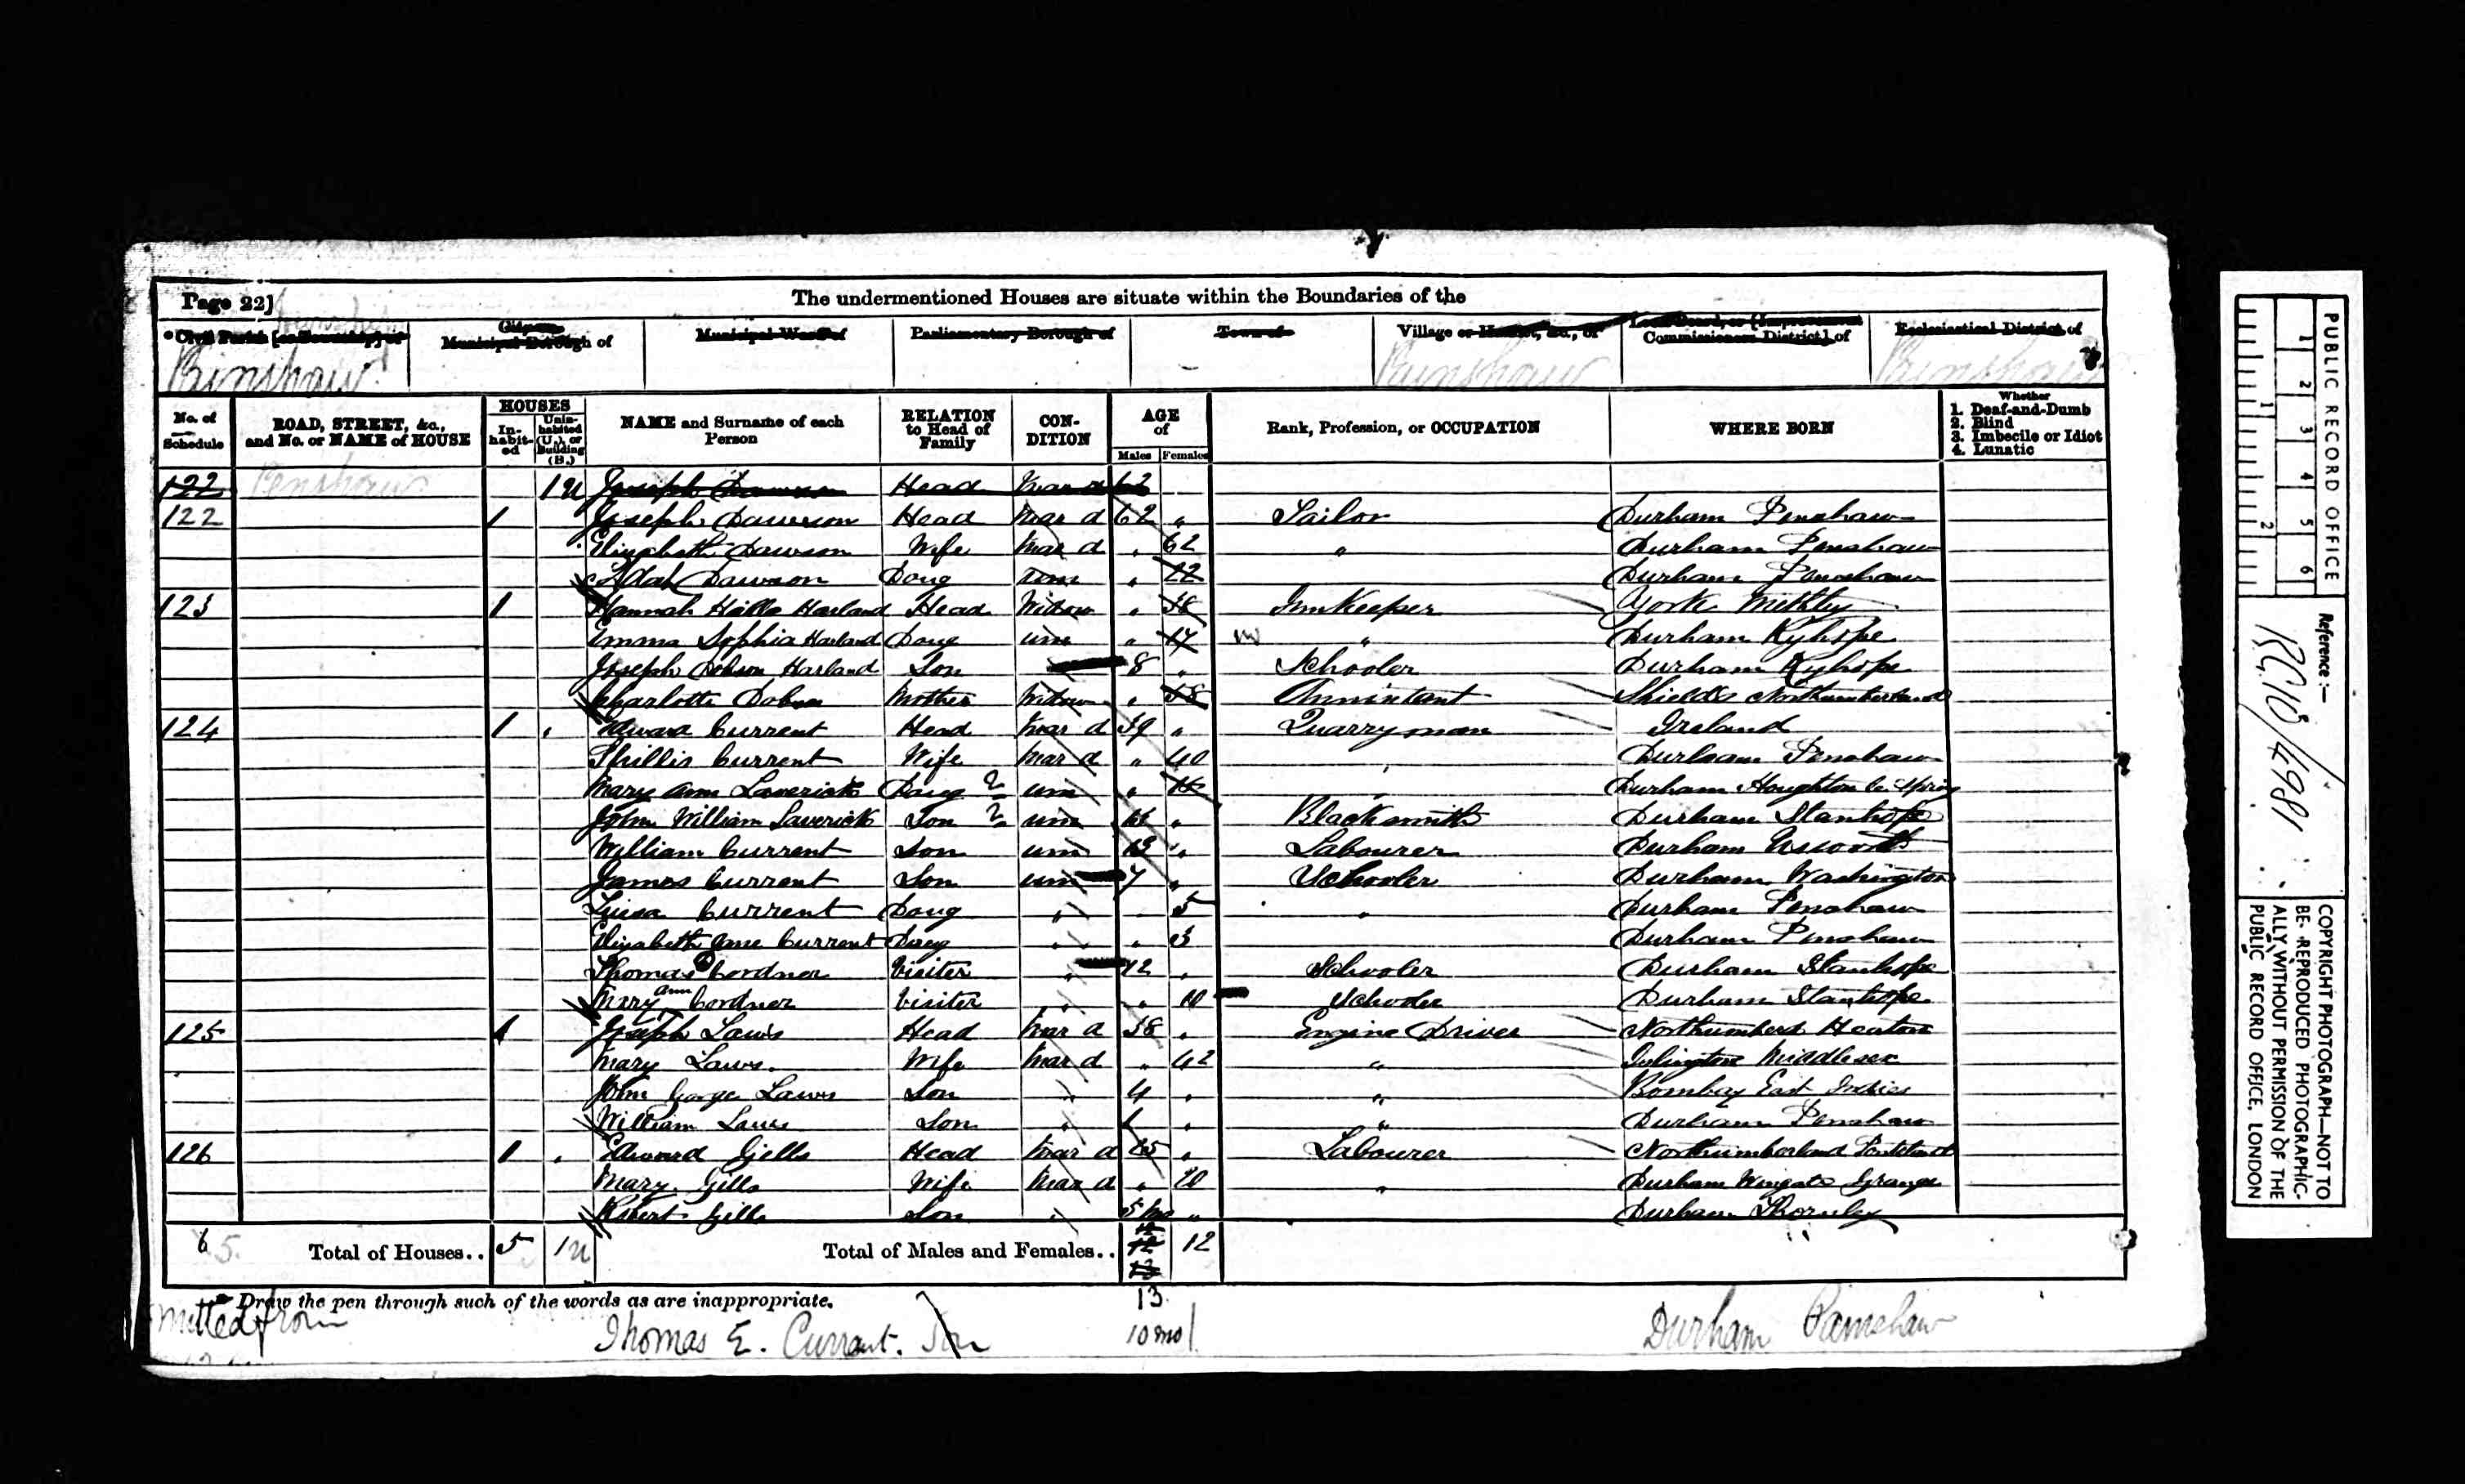 Page 22]
The undermentioned Houses are situate within the Boundaries of the
* Civil Parish [or Township] of
City or Municipal Borough of
Municipal Ward of
Parliamentary Borough of
Town of
Village or Hamlet, &c., of
Local Board, or [Improvement Commissioners District] of
Ecclesiastical District of
Pinshaw Pinshaw Pinshaw
No. of Schedule
ROAD, STREET, &c., and No. or NAME of HOUSE
HOUSES
In-habit-ed
Unin-habited (U.), or Building (B.)
NAME and Surname of each Person
RELATION to Head of Family
CON-DITION
AGE of
Males Females
Rank, Profession, or OCCUPATION
WHERE BORN
Whether
1. Deaf-and-Dumb
2. Blind
3. Imbecile or Idiot
4. Lunatic
122 Penshaw 1 U Joseph Dawson Head Mar d 62
122 1 Joseph Dawson Head Mar d 62 " Tailor Durham Penshaw
Elizabeth Dawson Wife Mar d " 62 " Durham Penshaw
Dawson Daug Unm " 22 Durham Penshaw
123 1 Hannah Halla Harland Head Widow " 38 Innkeeper York
Emma Sophia Harland Daug Unm " 17 " Durham Ryhope
Joseph Dobson Harland Son 8 " Schooler Durham Ryhope
Charlotte Dobson Mother Widow " Annuitant Shields Northumberland
124 1 " Edward Current Head Mar d 39 " Quarryman Ireland
Phillis Current Wife Mar d " 40 " Durham Penshaw
Mary Ann Laverick Daug ? Unm " Durham Houghton le Spring
John William Laverick Son ? Unm " Blacksmith Durham Stanhope
William Current Son Unm 13 " Labourer Durham Usworth
James Current Son Unm 7 " Schooler Durham Washington
Luisa Current Daug " 5 " Durham Penshaw
Elizabeth Jane Current Daug " " 3 Durham Penshaw
Thomas Cordner Visiter " 12 " Schooler Durham Stanhope
Mary Ann Cordner Visiter " " 10 Schooler Durham Stanhope
125 1 Joseph Laws Head Mar d 38 " Engine Driver Northumberd Heaton
Mary Laws Wife Mar d " 42 " Islington Middlesex
John George Laws Son " 4 " " Bombay East Indies
William Laws Son " 1 " " Durham Penshaw
126 1 " Edward Gills Head Mar d 25 " Labourer Northumberland
Mary Gills Wife Mar d " 20 " Durham Wingate Grange
Robert Gills Son " 5 Mo " Durham Thornley
6 5. Total of Houses.. 5 1 U Total of Males and Females.. 12
13
* Draw the pen through such of the words as are inappropriate.
omitted from Thomas E. Currant. Son 10 mo Durham Painshaw
PUBLIC RECORD OFFICE
1 2 3 4 5 6
1 2
Reference:—
RG10/4981
COPYRIGHT PHOTOGRAPH—NOT TO BE REPRODUCED PHOTOGRAPHIC-ALLY WITHOUT PERMISSION OF THE PUBLIC RECORD OFFICE, LONDON